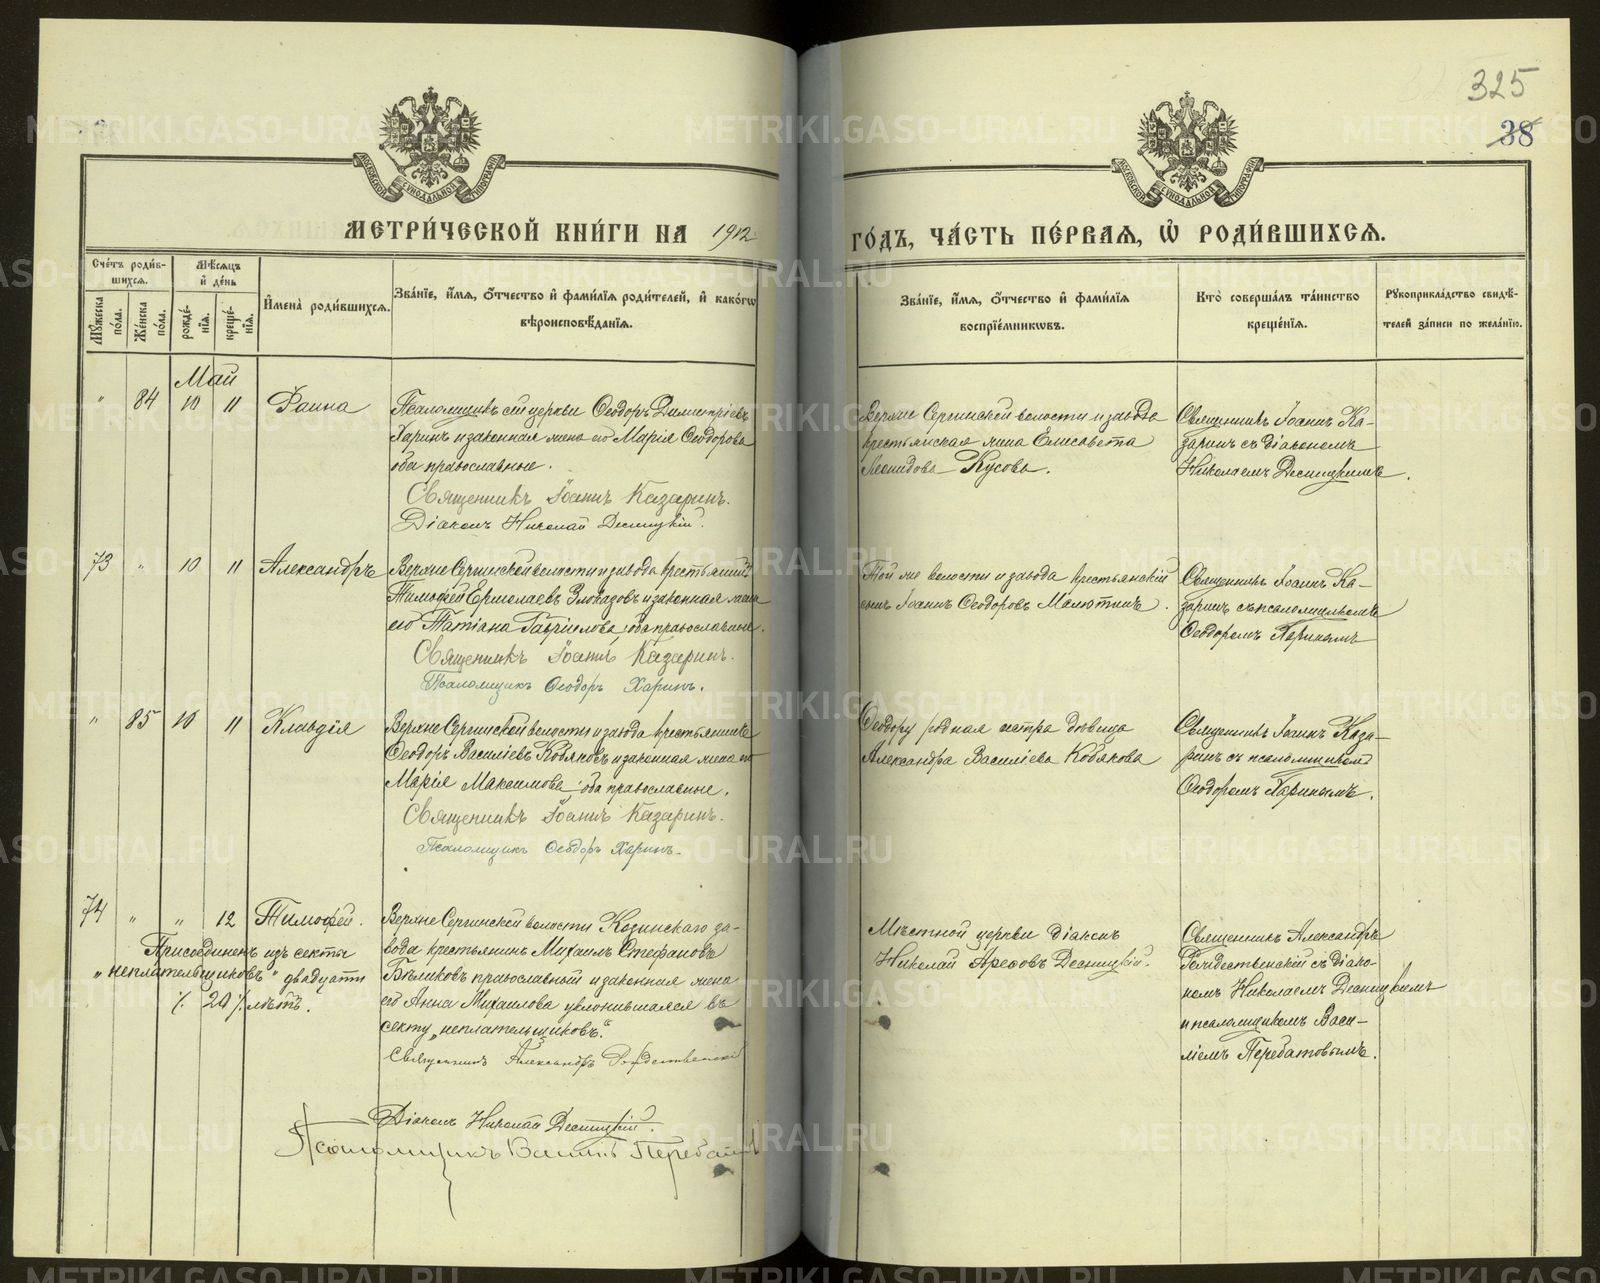 325
38
МОСКОВСКОЙ СѴНОДАЛЬНОЙ ТИПОГРАФІИ
МОСКОВСКОЙ СѴНОДАЛЬНОЙ ТИПОГРАФІИ
МЕТРИ́ЧЕСКОЙ КНИ́ГИ НА 1912
ГО́ДЪ, ЧА́СТЬ ПЕ́РВАЯ, Ѽ РОДИ́ВШИХСЯ.
Сче́тъ роди́в-
шихся.
Мꙋ́жеска по́ла.
Же́нска по́ла.
Мѣ́сяцъ
и҆ де́нь
рожде́-
нїя.
креще́-
нїя.
И҆мена̀ роди́вшихся.
Зва́нїе, и҆́мя, ѻ҆́тчество и҆ фами́лїя роди́телей, и҆ како́гѡ
вѣроисповѣ́данїя.
Зва́нїе, и҆́мя, ѻ҆́тчество и҆ фами́лїя
воспрїе́мникѡвъ.
Кто̀ соверша́лъ та́инство
креще́нїя.
Рꙋкоприкла́дство свидѣ́-
телей за́писи по жела́нїю.
Май
" 84 10 11 Фаина
Псаломщикъ сей церкви Ѳеодоръ Димитріевъ
Харинъ и законная жена его Марія Ѳеодорова
оба православные.
Священникъ Іоаннъ Казаринъ.
Діаконъ Николай Десницкій.
Верхне Сергинской волости и завода
крестьянская жена Елисавета
Леонидова Кусова.
Священникъ Іоаннъ Ка-
заринъ съ діакономъ
Николаемъ Десницкимъ.
73 " 10 11 Александръ
Верхне Сергинской волости и завода крестьянинъ
Тимофей Ермолаевъ Злоказовъ и законная жена
его Татіана Гавріилова, оба православные.
Священникъ Іоаннъ Казаринъ.
Псаломщикъ Ѳеодоръ Харинъ.
Той же волости и завода крестьянскій
сынъ Іоаннъ Ѳеодоровъ Малютинъ.
Священникъ Іоаннъ Ка-
заринъ съ псаломщикомъ
Ѳеодоромъ Харинымъ
" 85 10 11 Клавдія
Верхне Сергинской волости и завода крестьянинъ
Ѳеодоръ Василіевъ Кобяковъ и законная жена его
Марія Максимова, оба православные.
Священникъ Іоаннъ Казаринъ.
Псаломщикъ Ѳеодоръ Харинъ.
Ѳеодору родная сестра дѣвица
Александра Василіева Кобякова
Священникъ Іоаннъ Каза-
ринъ съ псаломщикомъ
Ѳеодоромъ Харинымъ.
74 " " 12 Тимофей.
Присоединенъ изъ секты
"неплательщиковъ" двадцати
/. 20 /. лѣтъ.
Верхне Сергинской волости Козинскаго за-
вода крестьянинъ Михаилъ Стефановъ
Бѣликовъ православный и законная жена
его Анна Михаилова уклонившаяся въ
секту "неплательщиковъ".
Священникъ Александръ Рождественскій
Діаконъ Николай Десницкій.
Псаломщикъ Василій Перебатовъ
Мѣстной церкви діаконъ
Николай Арефовъ Десницкій.
Священникъ Александръ
Рождественскій съ діако-
номъ Николаемъ Десницкимъ
и псаломщикомъ Васи-
ліемъ Перебатовымъ.
METRIKI.GASO-URAL.RU